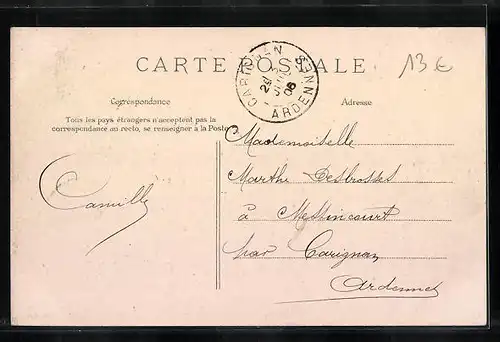 CARTE POSTALE
CARIGNAN
ARDENNES
06
13€
Correspondance
Adresse
Tous les pays étrangers n'acceptent pas la
correspondance au recto, se renseigner à la Poste
Mademoiselle
Marthe Desbrosses
Camille
à Messincourt
par Carignan
Ardennes